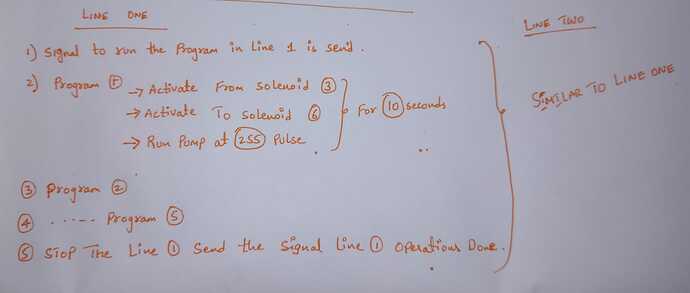 LINE ONE
1) Signal to run the Program in Line 1 is send.
2) Program ① → Activate From Solenoid ③
→ Activate To Solenoid ⑥
→ Run Pump at 255 Pulse
For 10 seconds
③ Program ②
④ ...... Program ⑤
⑤ STOP The Line ① Send the Signal Line ① Operations Done.
LINE TWO
SIMILAR TO LINE ONE